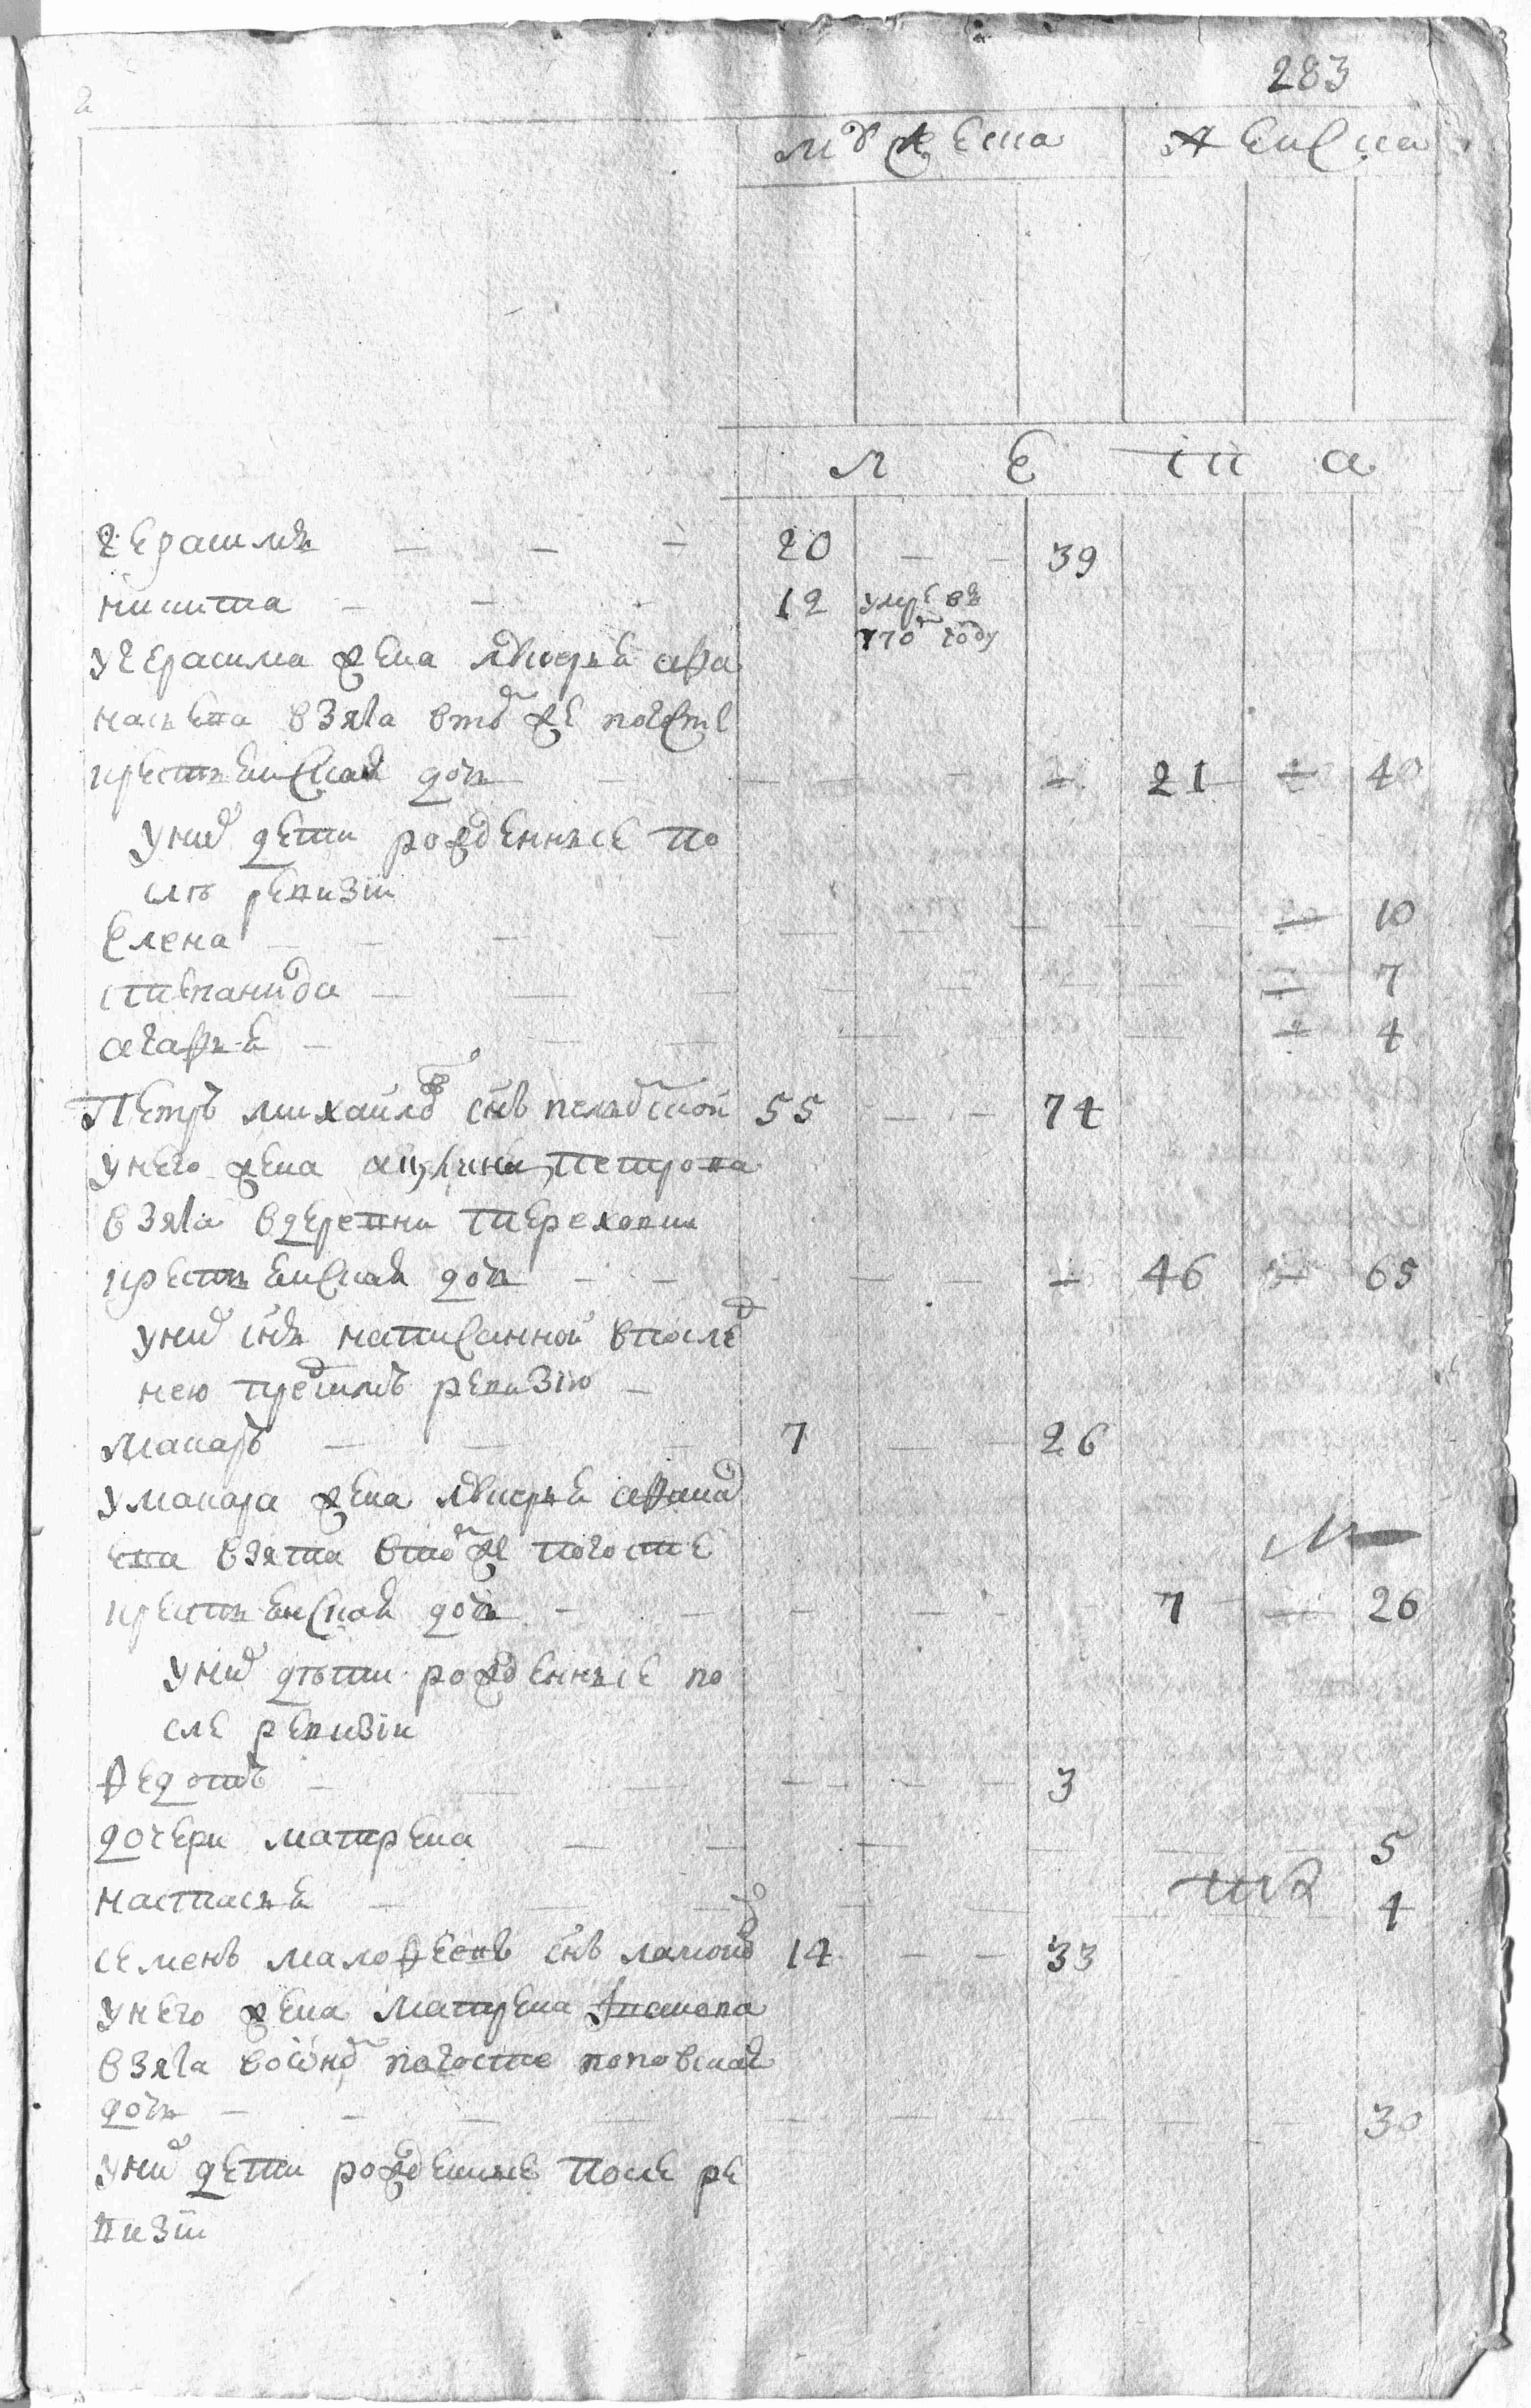 283
мужеска женска
л е т а
Герасимъ — — — 20 — — 39
никита — — — 12 умре въ
770м году
у герасима жена лвкерья афа
насьева взята втом же погосте
крестьянская дочь — — — — 21 — 40
у них дети рожденные по
слѣ ревизiи
Елена — — — — 10
степанида — — — — 7
агафья — — — — 4
Петръ михайловъ снъ 55 — — 74
у него жена акулина петрова
взята в деревни
крестьянская дочь — — — — 46 — 65
у них снъ написанной в послед
нею пред симъ ревизiю —
макаръ — — — 7 — — 26
у макара жена лвкерья
ева взята втом же погосте
крестьянская дочь — — — — 7 — 26
у них дѣти рожденные по
сле ревизiи
Федотъ — — — — 3
дочери матрена — — — 5
настасья — — — 4
семенъ малофеевъ снъ 14 — — 33
у него жена матрена
взята погосте поповская
дочь — — — — 30
у них дети рожденные после ре
визiи